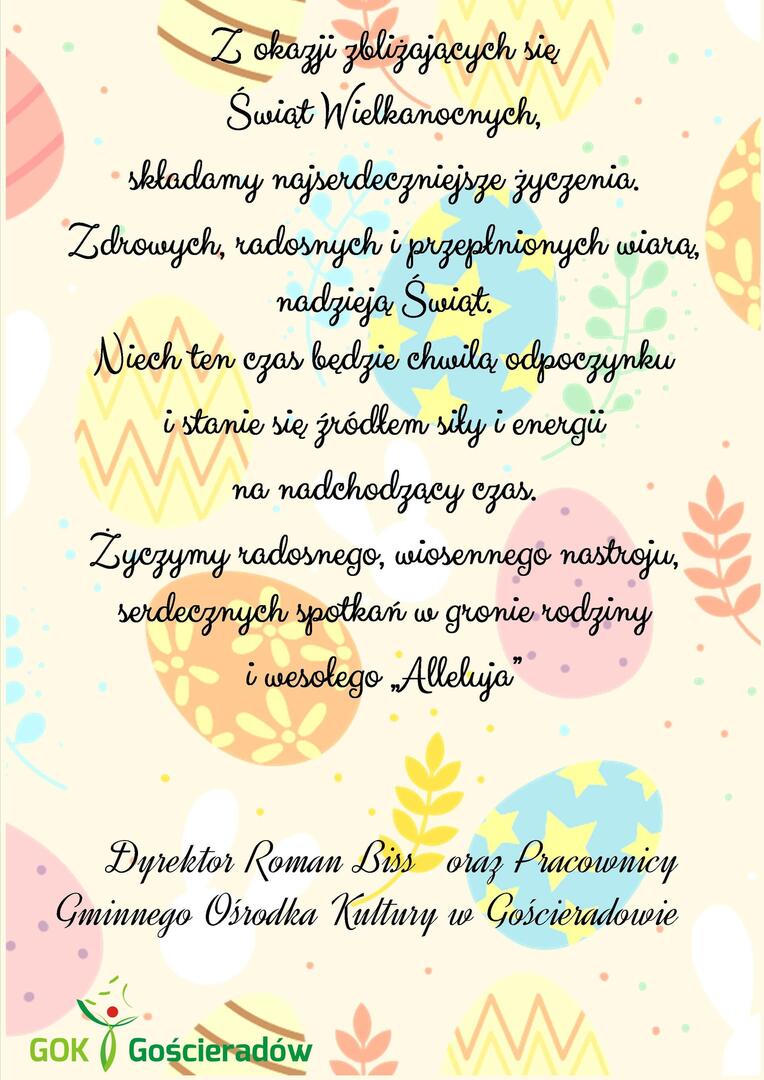 Z okazji zbliżających się
Świąt Wielkanocnych,
składamy najserdeczniejsze życzenia.
Zdrowych, radosnych i przepłnionych wiarą,
nadzieją Świąt.
Niech ten czas będzie chwilą odpoczynku
i stanie się źródłem siły i energii
na nadchodzący czas.
Życzymy radosnego, wiosennego nastroju,
serdecznych spotkań w gronie rodziny
i wesołego „Alleluja”
Dyrektor Roman Biss oraz Pracownicy
Gminnego Ośrodka Kultury w Gościeradowie
GOK Gościeradów